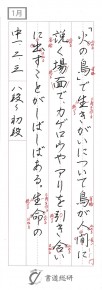 1月
「火の鳥」で生きがいについて鳥が人間に
説く場面でカゲロウやアリを引き合い
に出すことがしばしばある。生命の
中一二三 八段〜初段
書道総研